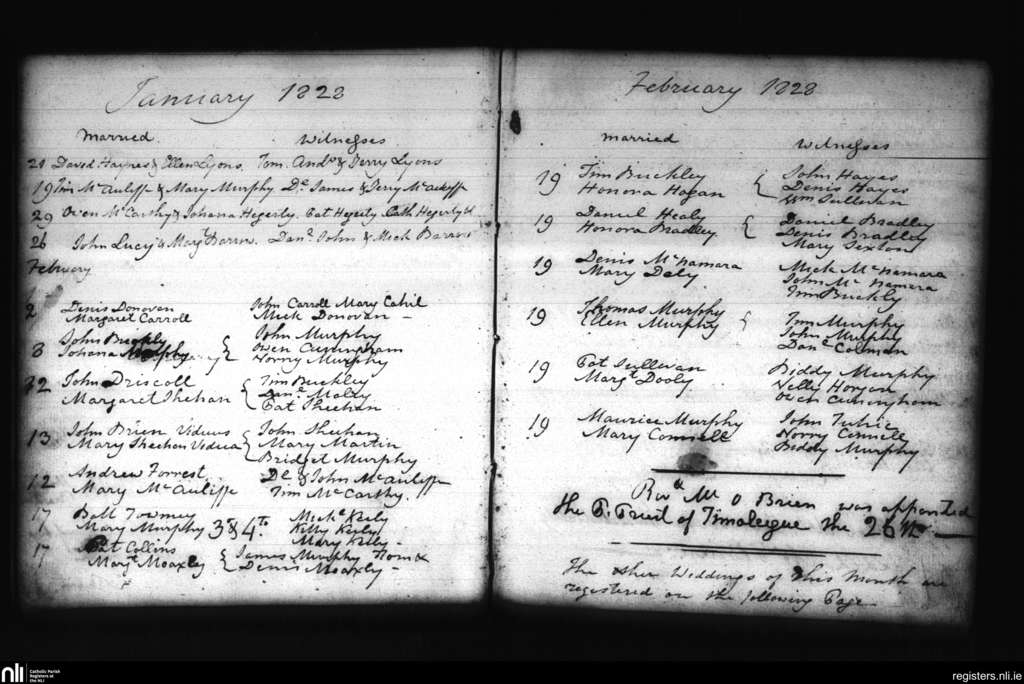 January 1828
Married Witnesses
21 David Haynes & Ellen Lyons. Tom. Andw & Jerry Lyons
19 Tim McAuliffe & Mary Murphy Dl James & Jerry McAuliffe
29 Owen McCarthy & Johana Hegerty. Pat Hegerty Cath Hegerty
26 John Lucy & Margt Barrw. Danl John & Mick Barrow
February
2 Denis Donovan John Carroll Mary Cahil
Margaret Carroll Mick Donovan –
8 John John Murphy
Johana Murphy Owen Cuningham
Norry Murphy
12 John Driscoll Tim Buckley
Margaret Shehan Danl
Pat Sheehan
13 John Brien Viduus John Shuhan
Mary Sheehan Vidua Mary Martin
Bridget Murphy
12 Andrew Forrest Dl & John McAuliffe
Mary McAuliffe Tim McCarthy.
17 Batt Towmey Michl Keily
Mary Murphy 3 & 4to Kitty Keily
Mary Keily –
17 Pat Collins James Murphy
Margt Moaxley Denis Moaxley –
February 1828
Married Witnesses
19 Tim Buckley John Hayes
Honora Hogan Denis Hayes
Wm Sullivan
19 Daniel Healy Daniel Bradley
Honora Bradley Denis Bradley
Mary Sexton
19 Denis McNamara Mick McNamara
Mary Daly John McNamera
Tim Buckly
19 Thomas Murphy Tim Murphy
Ellen Murphy John Murphy
Danl Colman
19 Pat Sullivan Biddy Murphy
Margt Dooly Nelly Horgan
Owen Cuningham
19 Maurice Murphy John
Mary Connell Norry Connell
Biddy Murphy
Revd Mr O Brien was appointed
the P. Priest of Timoleague the 26th —
The other Weddings of this Month are
registered on the following Page
nli Catholic Parish
Registers at
the NLI
registers.nli.ie